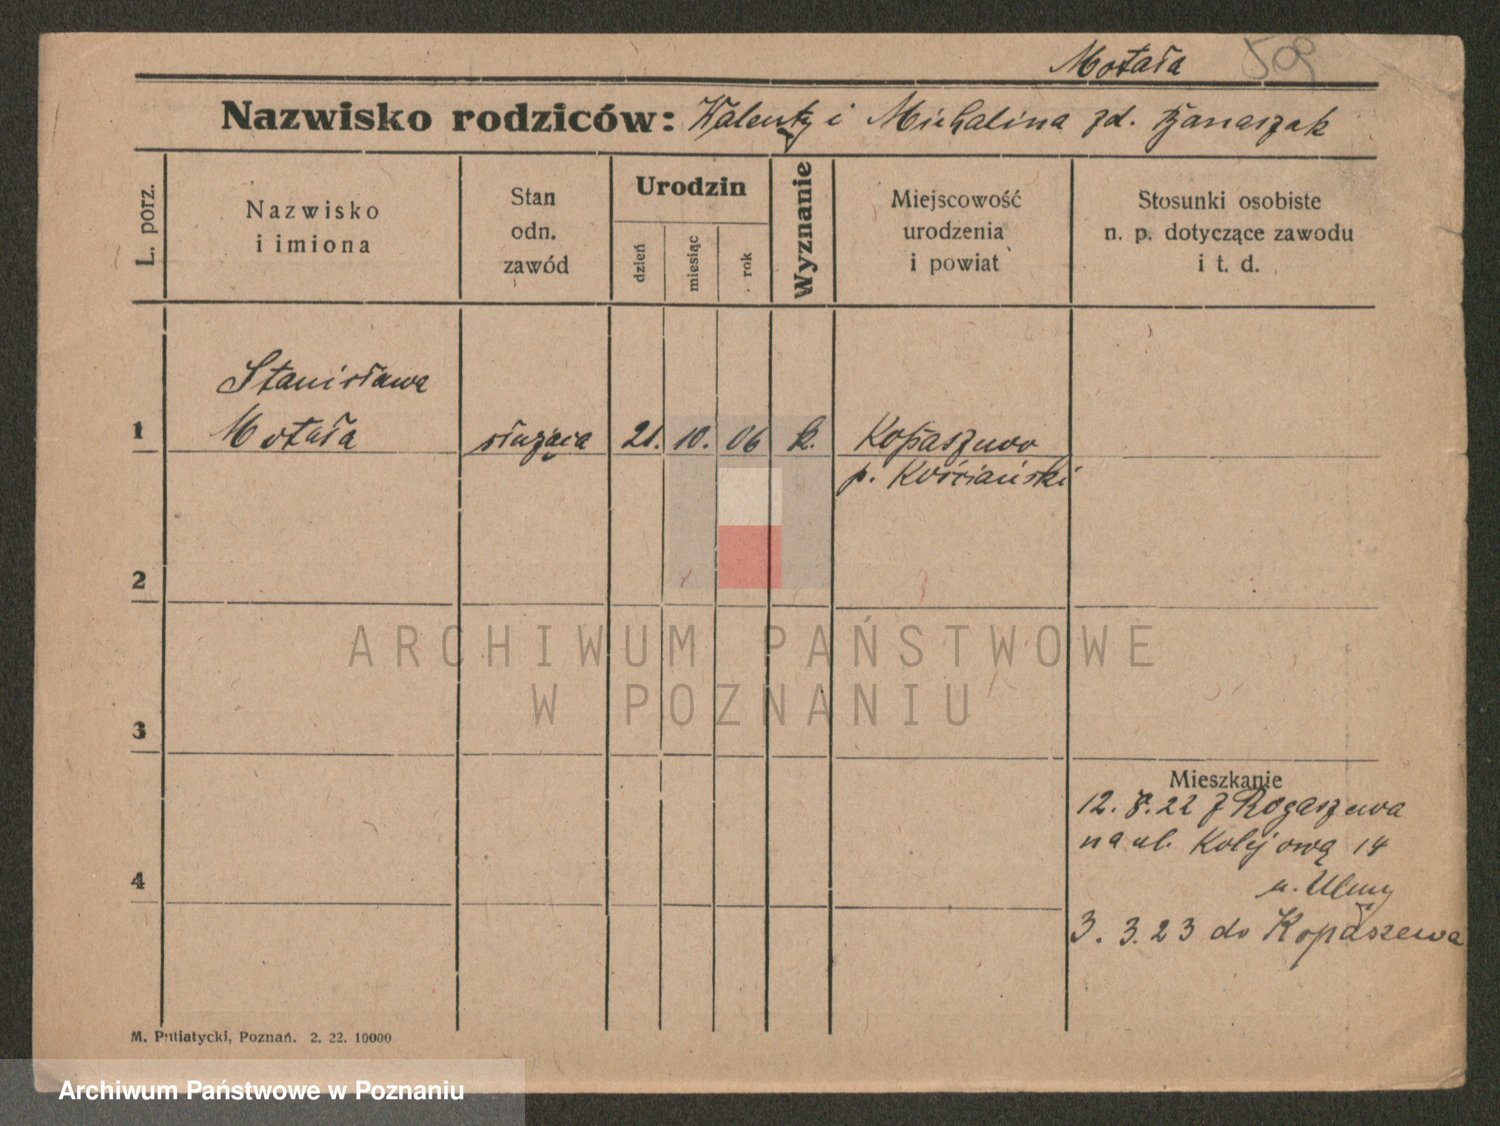 Motała 509
Nazwisko rodziców: Walenty i Michalina zd.
L. porz.
Nazwisko
i imiona
Stan
odn.
zawód
Urodzin
dzień
miesiąc
rok
Wyznanie
Miejscowość
urodzenia
i powiat
Stosunki osobiste
n. p. dotyczące zawodu
i t. d.
Stanisława
1 Motała służąca 21. 10. 06 k. Kopaszewo
p. Kościański
2
ARCHIWUM PAŃSTWOWE
W POZNANIU
3
Mieszkanie
12. 8. 22 z Rogaszewa
na ul. Kolejową 14
4
u. Ulmy
3. 3. 23 do Kopaszewa
M. Putiatycki, Poznań. 2. 22. 10000
Archiwum Państwowe w Poznaniu